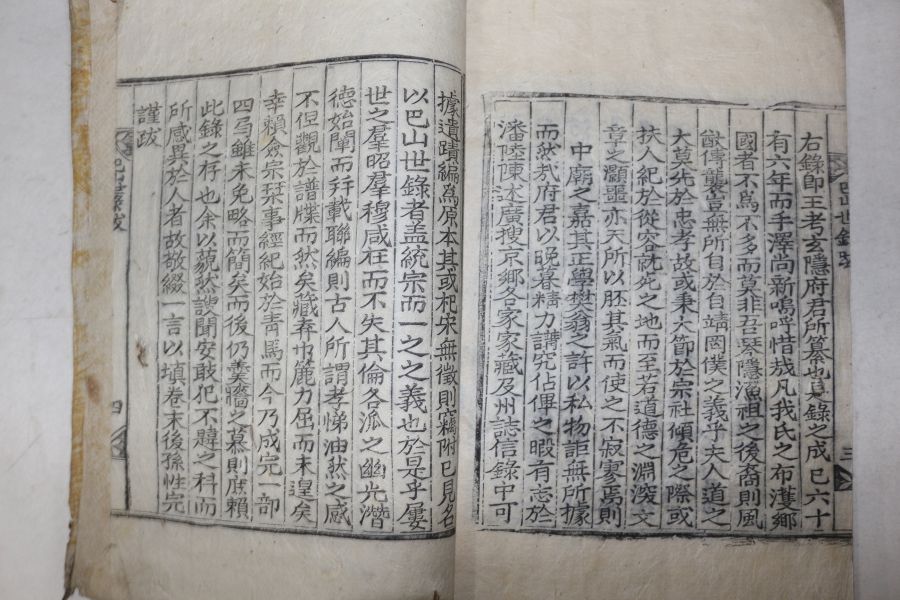 右錄即王考玄隱府君所纂也自錄之成已六十
有六年而手澤尚新嗚呼惜哉凡我氏之布濩鄉
國者不爲不多而莫非吾琴隱漁祖之後裔則風
猷傳襲豈無所自於自靖罔僕之義乎夫人道之
大莫先於忠孝故或秉大節於宗社傾危之際或
扶人紀於從容就死之地而至若道德之淵浚文
章之灝噩亦天所以胚其氣而使之不寂寥焉則
中廟之嘉其正學樊翁之許以私物詎無所據
而然哉府君以晚暮精力講究佔俾之暇有志於
潘陸陳述廣搜京鄉各家家藏及州誌信錄中可
據遺蹟編爲原本其或杞宋無徵則竊附已見名
以巴山世錄者盖統宗而一之之義也於是乎屢
世之羣昭羣穆咸在而不失其倫各派之幽光潛
德始闡而幷載聯編則古人所謂孝悌油然之感
不但觀於譜牒而然矣藏弆巾簏力屈而未遑矣
幸賴僉宗栞事經紀始於靑馬而今乃成完一部
四局雖未免略而簡矣而後仍羹墻之慕則庶賴
此錄之存也余以藐然謏聞安敢犯不韙之科而
所感異於人者故敢綴一言以塡卷末後孫性完
謹跋
巴山世錄跋
三
四